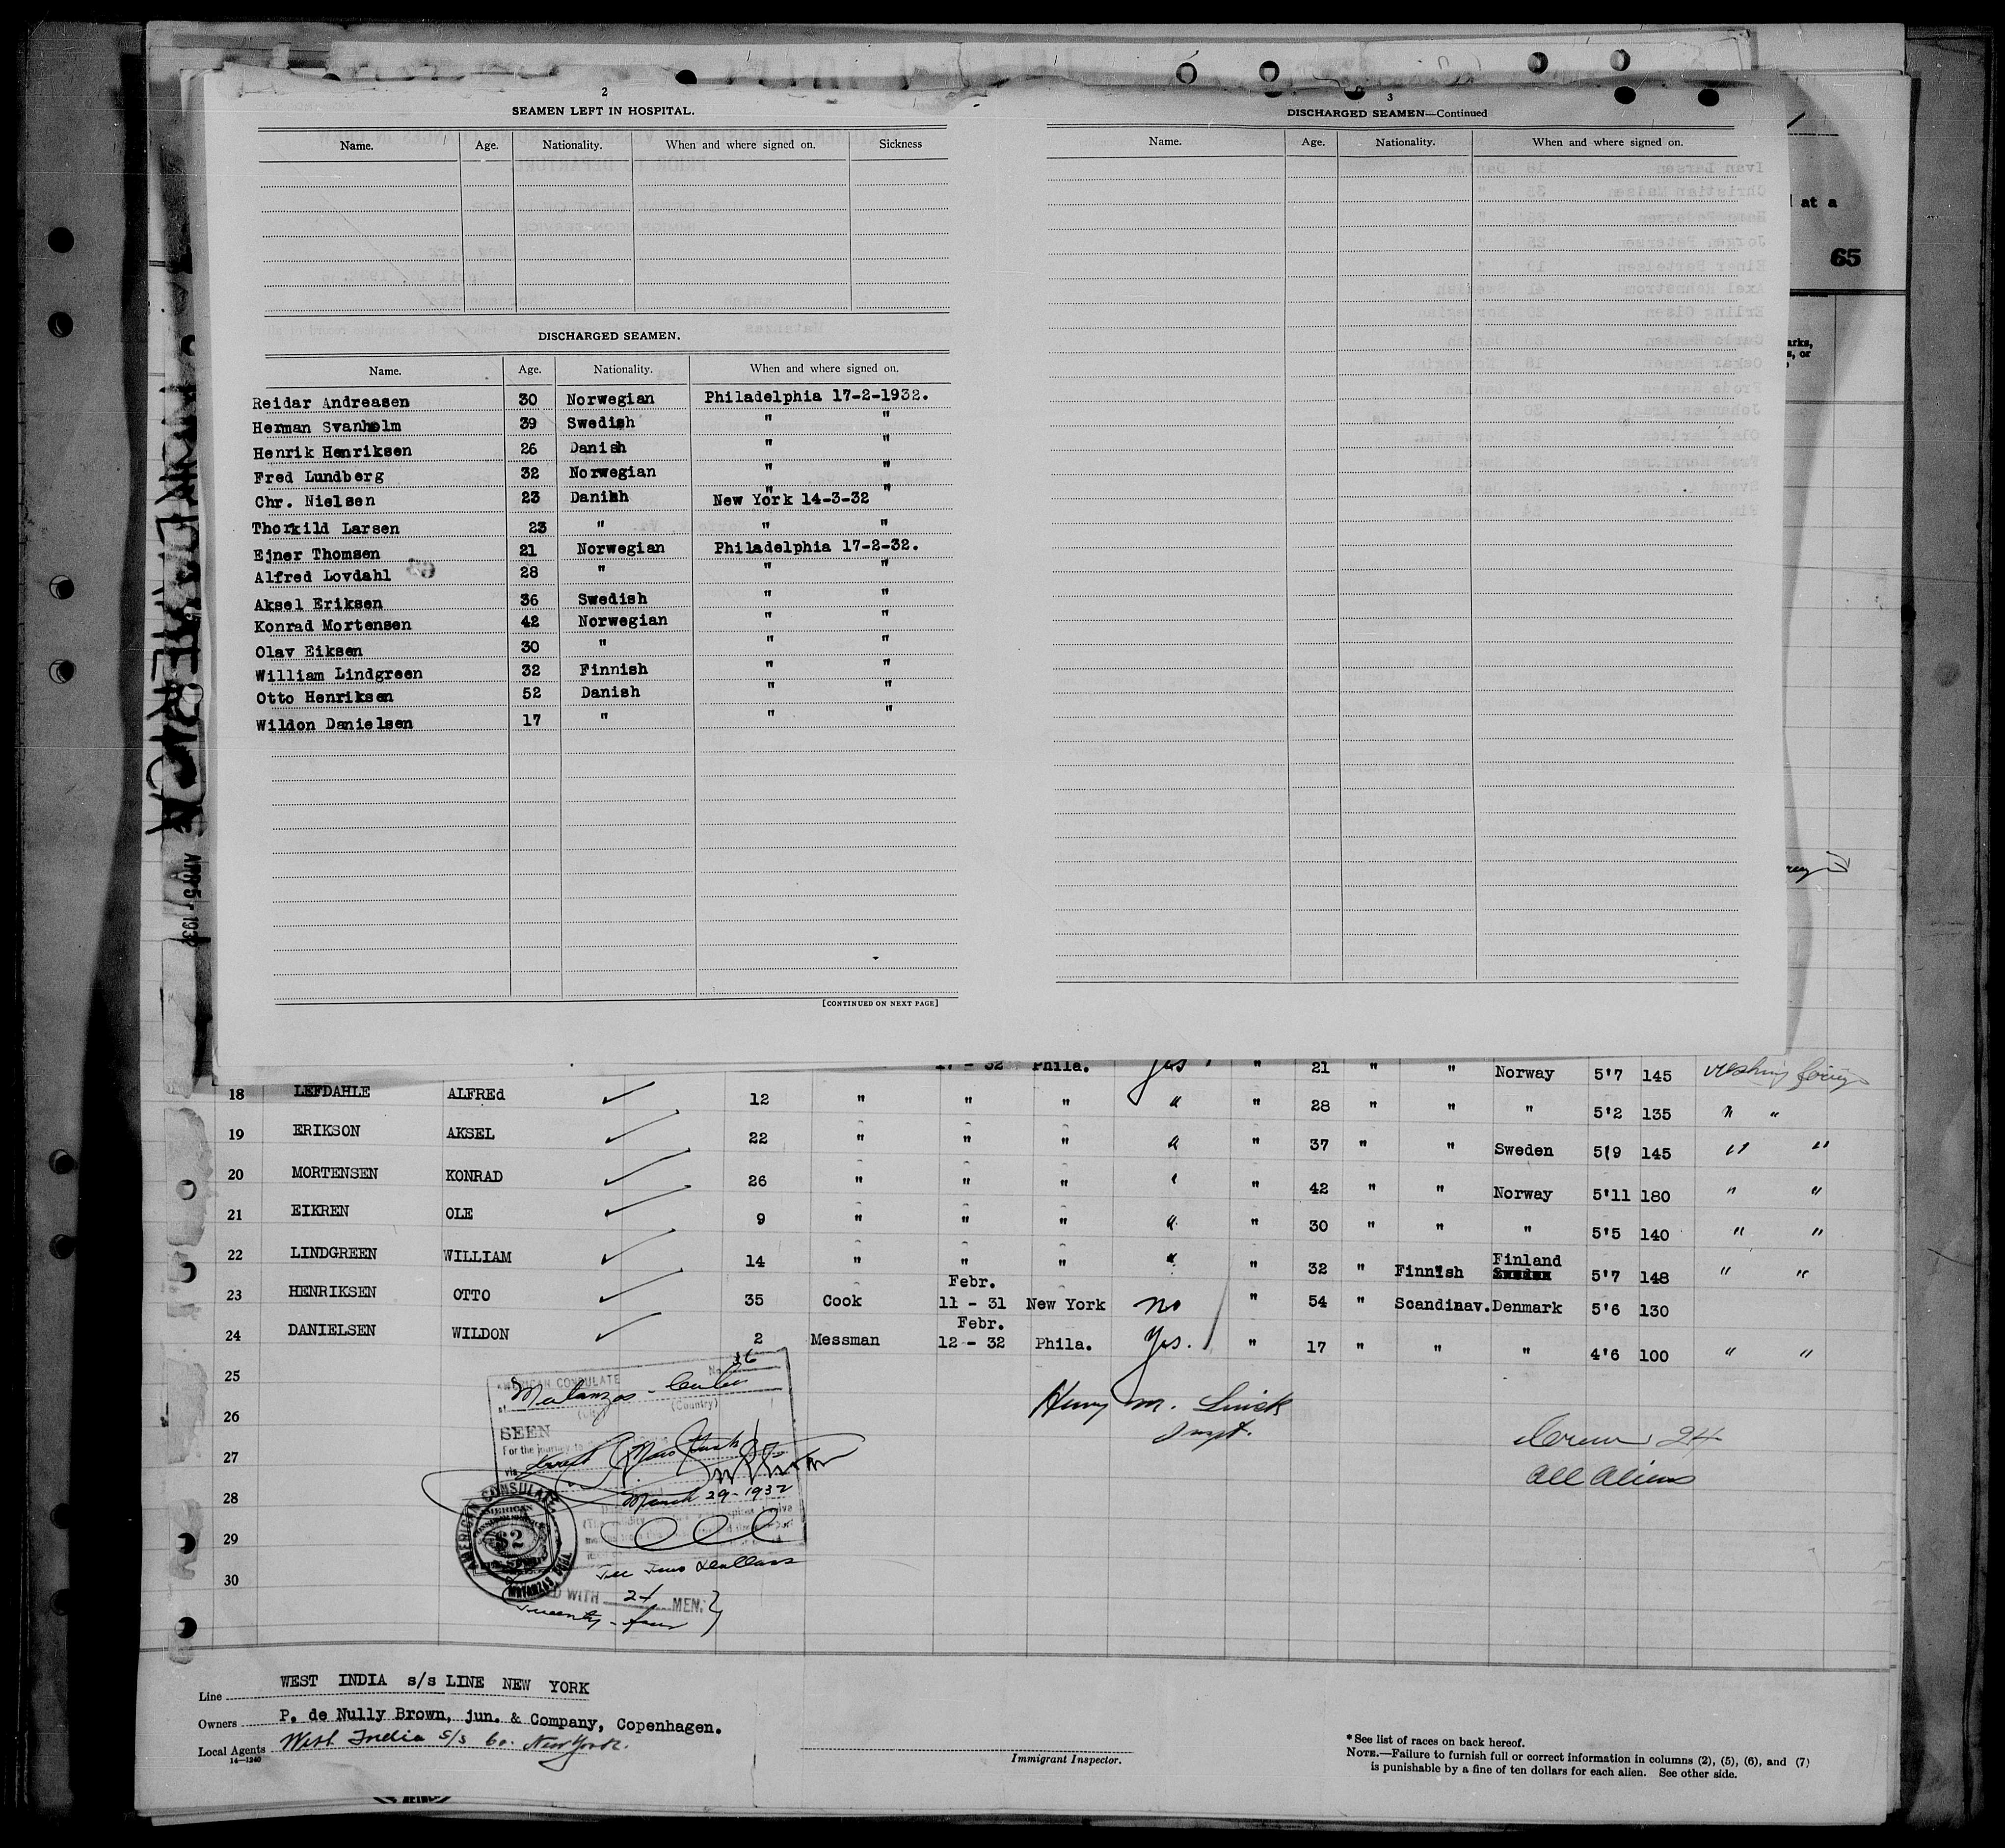 2
SEAMEN LEFT IN HOSPITAL.
Name. Age. Nationality. When and where signed on. Sickness
DISCHARGED SEAMEN.
Name. Age. Nationality. When and where signed on.
Reidar Andreasen 30 Norwegian Philadelphia 17-2-1932.
Herman Svanholm 39 Swedish " "
Henrik Henriksen 26 Danish " "
Fred Lundberg 32 Norwegian " "
Chr. Nielsen 23 Danish New York 14-3-32 "
Thorkild Larsen 23 " " "
Ejner Thomsen 21 Norwegian Philadelphia 17-2-32.
Alfred Lovdahl 28 " " "
Aksel Eriksen 36 Swedish " "
Konrad Mortensen 42 Norwegian " "
Olav Eiksen 30 " " "
William Lindgreen 32 Finnish " "
Otto Henriksen 52 Danish " "
Wildon Danielsen 17 " " "
[CONTINUED ON NEXT PAGE]
3
DISCHARGED SEAMEN—Continued
Name. Age. Nationality. When and where signed on.
at a
65
APR 5 - 193
17 - 32 Phila. yes " 21 " " Norway 5'7 145
18 LEFDAHLE ALFREd 12 " " " " " 28 " " " 5'2 135 " "
19 ERIKSON AKSEL 22 " " " " " 37 " " Sweden 5'9 145 " "
20 MORTENSEN KONRAD 26 " " " " " 42 " " Norway 5'11 180 " "
21 EIKREN OLE 9 " " " " " 30 " " " 5'5 140 " "
22 LINDGREEN WILLIAM 14 " " " " " 32 " Finnish Finland 5'7 148 " "
23 HENRIKSEN OTTO 35 Cook Febr. 11 - 31 New York no " 54 " Scandinav. Denmark 5'6 130
24 DANIELSEN WILDON 2 Messman Febr. 12 - 32 Phila. Yes. " 17 " " " 4'6 100 " "
25
26
27
28
29
30
AMERICAN CONSULATE No. 36
at Matanzas - Cuba
(City) (Country)
SEEN
For the journey to
via
March 29 - 1932
AMERICAN CONSULATE
$2
MATANZAS, CUBA
Fee Two Dollars
WITH 24 MEN.
Twenty - four
Henry M.
Inspt.
Crew 24
All Aliens
Line WEST INDIA s/s LINE NEW YORK
Owners P. de Nully Brown, jun. & Company, Copenhagen.
Local Agents West India S/s Co. New York.
14—1240
Immigrant Inspector.
* See list of races on back hereof.
NOTE.—Failure to furnish full or correct information in columns (2), (5), (6), and (7)
is punishable by a fine of ten dollars for each alien. See other side.